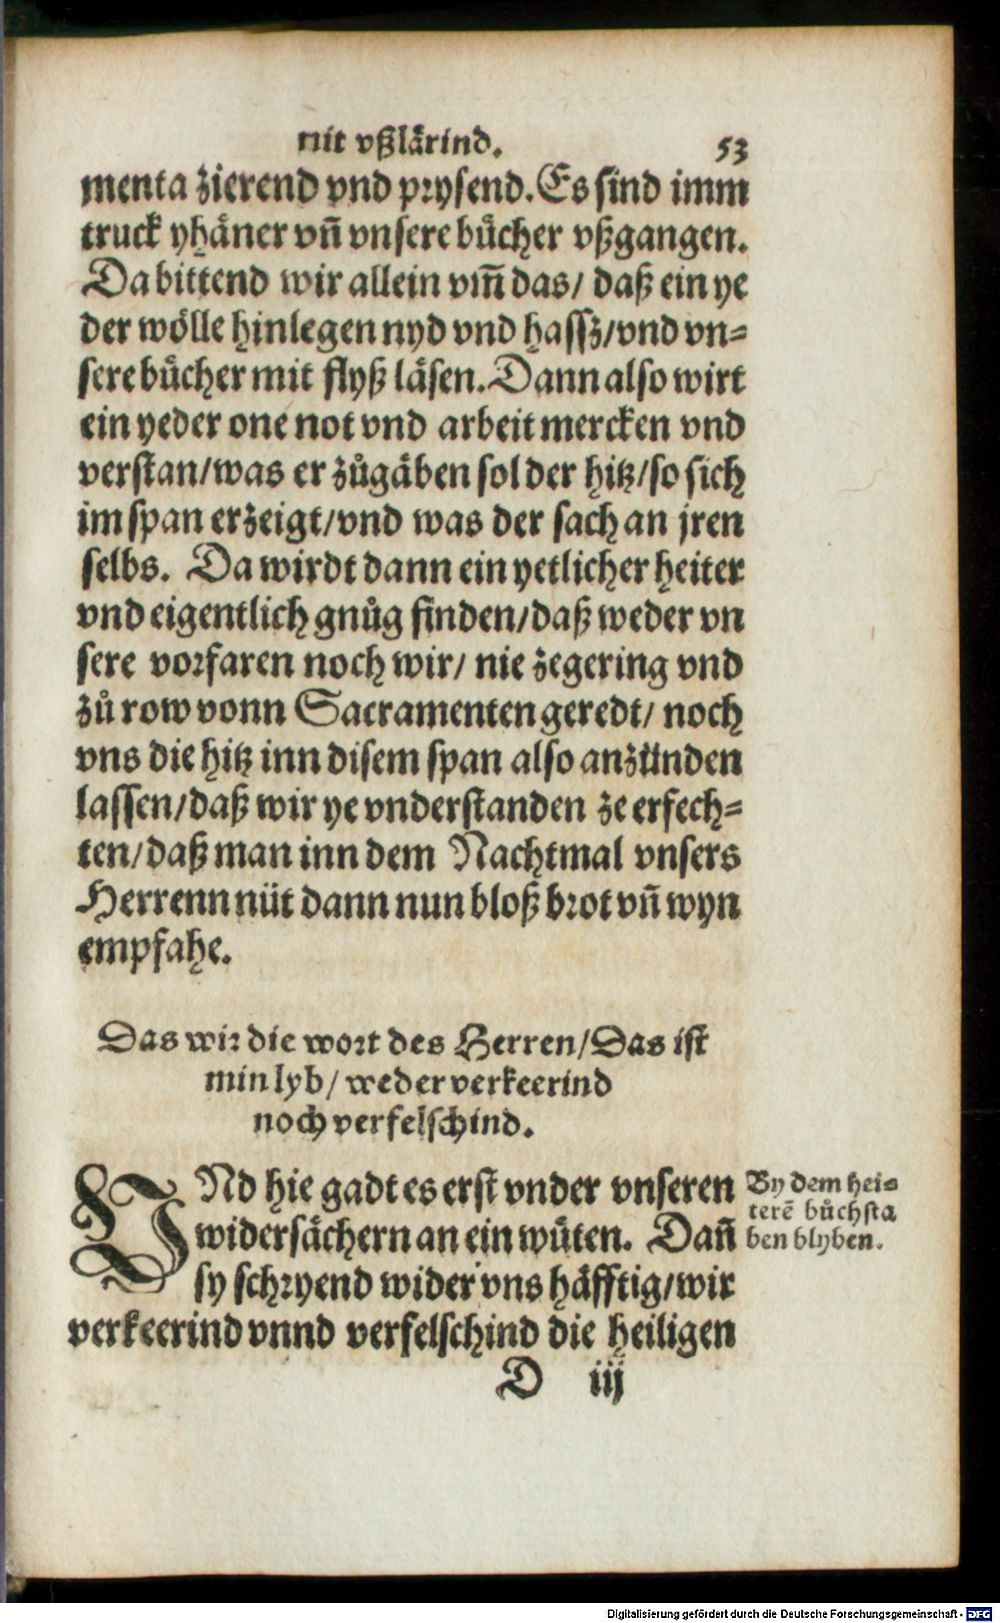 nit vßlärind. 53
menta zierend vnd prysend. Es sind imm
truck yhäner vñ vnsere bücher vßgangen.
Da bittend wir allein vm̃ das/ daß ein ye
der wölle hinlegen nyd vnd hassz/vnd vn-
sere bücher mit flyß läsen. Dann also wirt
ein yeder one not vnd arbeit mercken vnd
verstan/was er zůgäben sol der hitz/so sich
im span erzeigt/vnd was der sach an jren
selbs. Da wirdt dann ein yetlicher heiter
vnd eigentlich gnůg finden/daß weder vn
sere vorfaren noch wir/ nie zegering vnd
zů row vonn Sacramenten geredt/ noch
vns die hitz inn disem span also anzünden
lassen/daß wir ye vnderstanden ze erfech-
ten/daß man inn dem Nachtmal vnsers
Herrenn nüt dann nun bloß brot vñ wyn
empfahe.
Das wir die wort des Herren/Das ist
min lyb/ weder verkeerind
noch verfelschind.
VNd hie gadt es erst vnder vnseren
widersächern an ein wüten. Dañ
sy schryend wider vns häfftig/wir
verkeerind vnnd verfelschind die heiligen
By dem hei-
terẽ bůchsta
ben blyben.
D iij
Digitalisierung gefördert durch die Deutsche Forschungsgemeinschaft - DFG